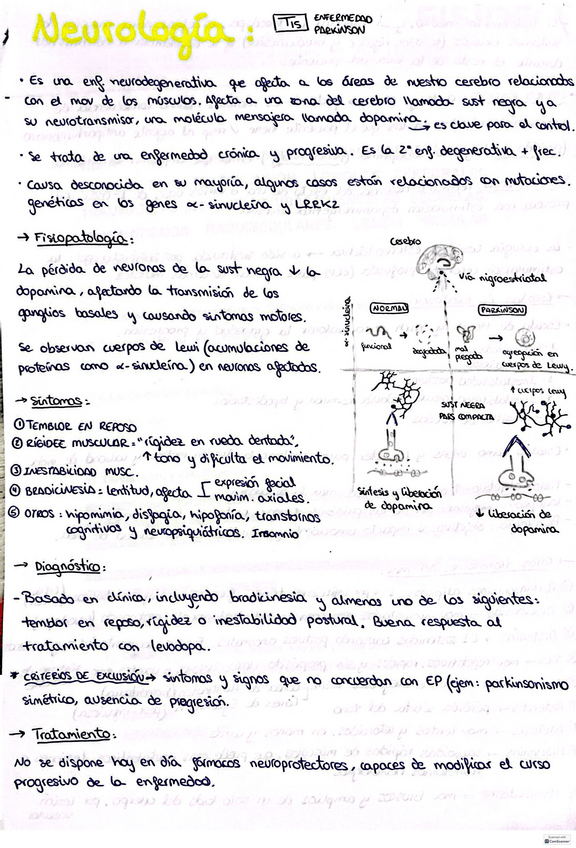 Neurología: T15 ENFERMEDAD
PARKINSON
· Es una enf. neurodegenerativa que afecta a las áreas de nuestro cerebro relacionadas
con el mov. de los músculos. Afecta a una zona del cerebro llamada sust negra y a
su neurotransmisor, una molécula mensajera llamada dopamina. → es clave para el control.
· Se trata de una enfermedad crónica y progresiva. Es la 2ª enf. degenerativa + frec.
· Causa desconocida en su mayoría, algunos casos están relacionados con mutaciones.
genéticas en los genes α-sinucleína y LRRK2
→ Fisiopatología:
La pérdida de neuronas de la sust negra ↓ la
dopamina, afectando la transmisión de los
ganglios basales y causando síntomas motores.
Se observan cuerpos de Lewi (acumulaciones de
proteínas como α-sinucleína) en neuronas afectadas.
cerebro
Vía nigroestriatal
α-sinucleína
NORMAL
PARKINSON
funcional → degradada
mal
plegada
→ agregación en
cuerpos de Lewy.
↑ cuerpos Lewy
SUST NEGRA
PARS COMPACTA
Síntesis y liberación
de dopamina
↓ liberación de
dopamina.
→ Síntomas:
① TEMBLOR EN REPOSO
② RIGIDEZ MUSCULAR: "rigidez en rueda dentada",
↑ tono y dificulta el movimiento.
③ INESTABILIDAD MUSC.
④ BRADICINESIA: lentitud, afecta [ expresión facial
movim. axiales.
⑤ OTROS: hipomimia, disfagia, hipofonía, transtornos
cognitivos y neuropsiquiátricos. Insomnio
→ Diagnóstico:
- Basado en clínica, incluyendo bradicinesia y almenos uno de los siguientes:
temblor en reposo, rigidez o inestabilidad postural. Buena respuesta al
tratamiento con levodopa.
* CRITERIOS DE EXCLUSIÓN → síntomas y signos que no concuerdan con EP (ejem: parkinsonismo
simétrico, ausencia de progresión.
→ Tratamiento:
No se dispone hoy en día fármacos neuroprotectores, capaces de modificar el curso
progresivo de la enfermedad.
CamScanner